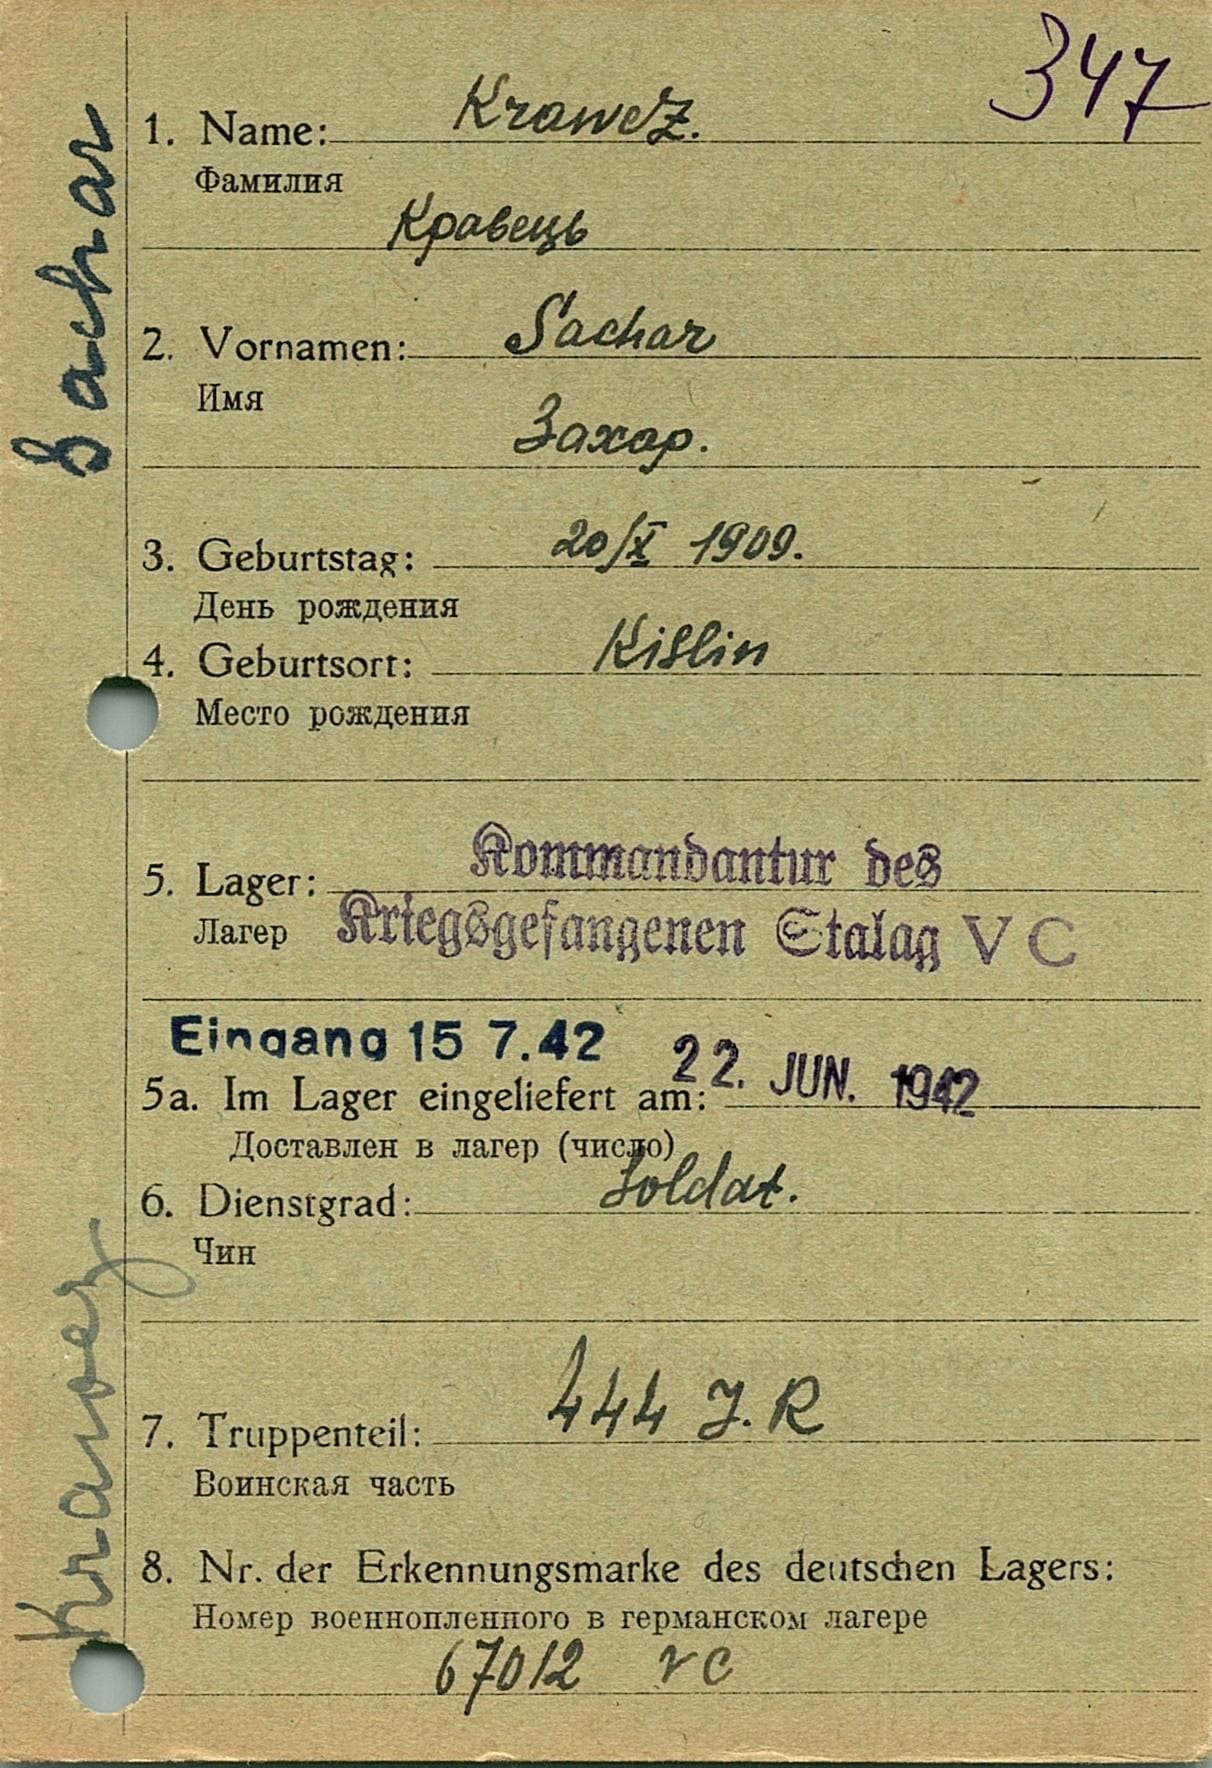 347
1. Name: Krawez.
Фамилия
Кравець
2. Vornamen: Sachar
Имя
Захар.
3. Geburtstag: 20/X 1909.
День рождения
4. Geburtsort: Kislin
Место рождения
Kommandantur des
5. Lager:
Лагер Kriegsgefangenen Stalag V C
Eingang 15 7.42
5a. Im Lager eingeliefert am: 22. JUN. 1942
Доставлен в лагер (число)
6. Dienstgrad: Soldat.
Чин
7. Truppenteil: 444 J.R
Воинская часть
8. Nr. der Erkennungsmarke des deutschen Lagers:
Номер военнопленного в германском лагере
67012 VC
Krawez Sachar